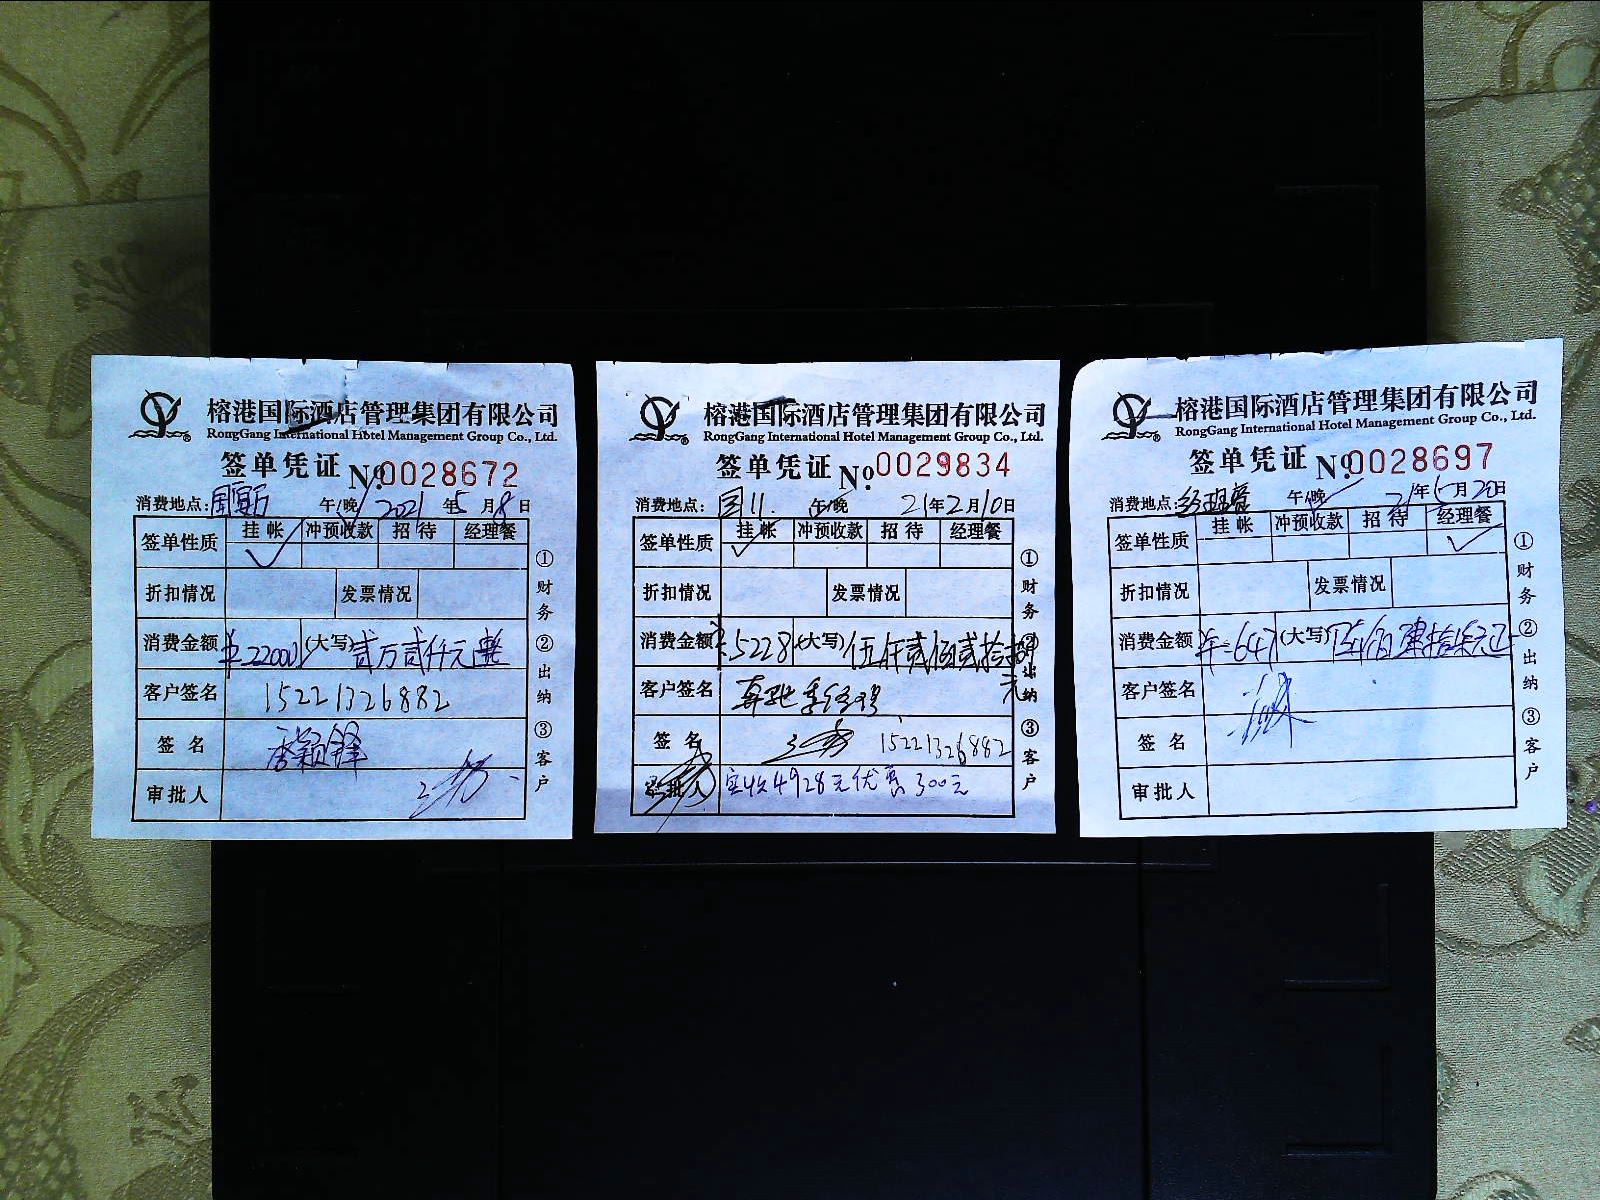 榕港国际酒店管理集团有限公司
RongGang International Hotel Management Group Co., Ltd.
签单凭证 No. 0028672
消费地点: 午/晚 2021年5月8日
签单性质 挂帐 冲预收款 招待 经理餐
折扣情况 发票情况
消费金额 ¥22000 (大写) 贰万贰仟元整
客户签名 15221326882
签名
审批人
①财务 ②出纳 ③客户
榕港国际酒店管理集团有限公司
RongGang International Hotel Management Group Co., Ltd.
签单凭证 No. 0029834
消费地点: 国11. 午/晚 21年2月10日
签单性质 挂帐 冲预收款 招待 经理餐
折扣情况 发票情况
消费金额 ¥5228 (大写) 伍仟贰佰贰拾捌元
客户签名
签名 15221326882
审批人 实收4928元优惠300元
①财务 ②出纳 ③客户
榕港国际酒店管理集团有限公司
RongGang International Hotel Management Group Co., Ltd.
签单凭证 No. 0028697
消费地点: 经理餐 午/晚 21年5月20日
签单性质 挂帐 冲预收款 招待 经理餐
折扣情况 发票情况
消费金额 ¥647 (大写)
客户签名
签名
审批人
①财务 ②出纳 ③客户